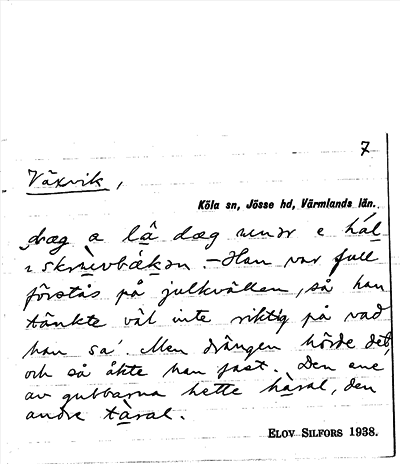 7
Växvik,
Köla sn, Jösse hd, Värmlands län.
dræg a lâ dæg under e hál
i skrùevbákon. – Han var full
förstås på julkvällen, så han
tänkte väl inte riktig på vad
han sa. Men drängen hörde det,
och så åkte han fast. Den ene
av gubbarna hette hàral, den
andre tàral.
ELOV SILFORS 1938.